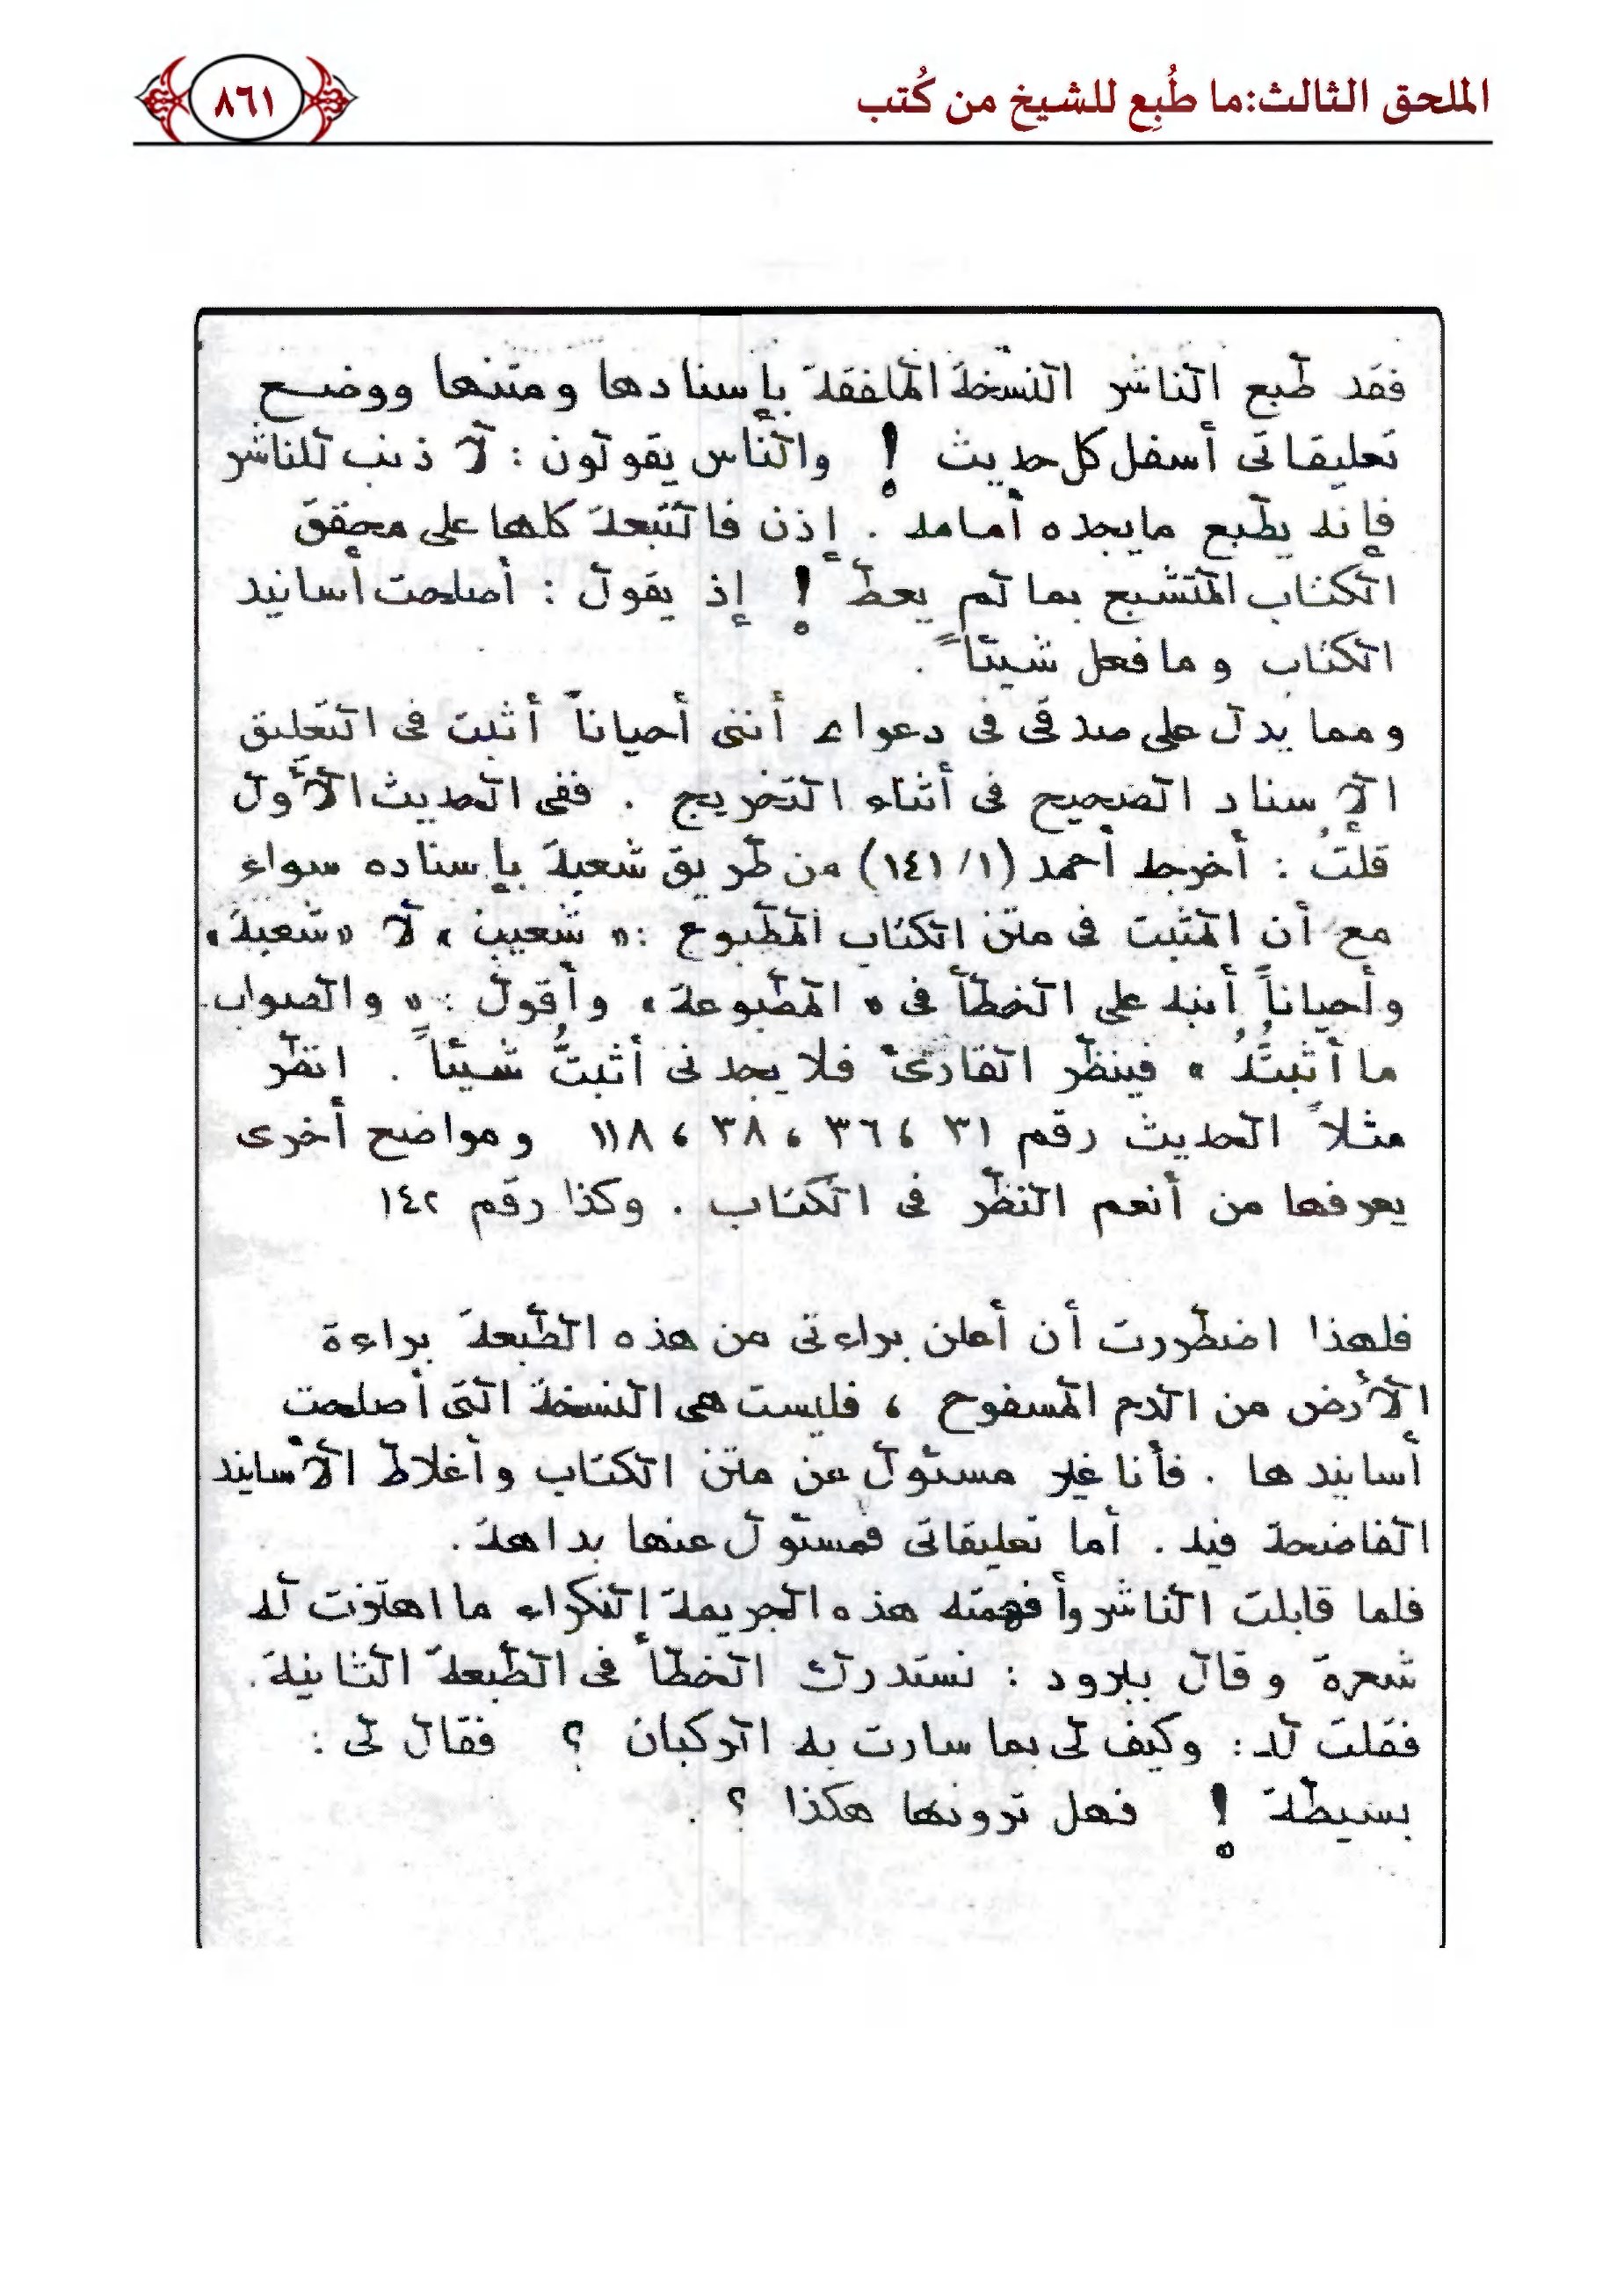 الملحق الثالث: ما طُبِع للشيخ من كُتب
٨٦١
فقد طبع الناشر النسخة الملفقة بإسنادها ومتنها ووضع
تعليقاتى أسفل كل حديث ! والناس يقولون : لا ذنب للناشر
فإنه يطبع ما يجده أمامه . إذن فالتبعة كلها على محقق
الكتاب المتشبع بما لم يعط ! إذ يقول : أصلحت أسانيد
الكتاب وما فعل شيئاً .
ومما يدل على صدقى فى دعواى أننى أحياناً أثبت فى التعليق
الإسناد الصحيح فى أثناء التخريج . ففى الحديث الأول
قلتُ : أخرجه أحمد (١/ ١٤١) من طريق شعبة بإسناده سواء
مع أن المثبت فى متن الكتاب المطبوع : « شعيب » لا « شعبة »
وأحياناً أنبه على الخطأ فى « المطبوعة » وأقول : « والصواب
ما أثبتُّه » فينظر القارئ فلا يجدنى أثبتُّ شيئاً . انظر
مثلاً الحديث رقم ٣١ ، ٣٦ ، ٣٨ ، ١١٨ ومواضع أخرى
يعرفها من أنعم النظر فى الكتاب . وكذا رقم ١٤٢
فلهذا اضطررت أن أعلن براءتى من هذه الطبعة براءة
الأرض من الدم المسفوح ، فليست هى النسخة التى أصلحت
أسانيدها . فأنا غير مسئول عن متن الكتاب وأغلاط الأسانيد
الفاضحة فيه . أما تعليقاتى فمسئول عنها بداهة .
فلما قابلت الناشر وأفهمته هذه الجريمة النكراء ما اهتزت له
شعرة وقال ببرود : نستدرك الخطأ فى الطبعة الثانية .
فقلت له : وكيف لى بما سارت به الركبان ؟ فقال لى :
بسيطة ! فهل ترونها هكذا ؟ .